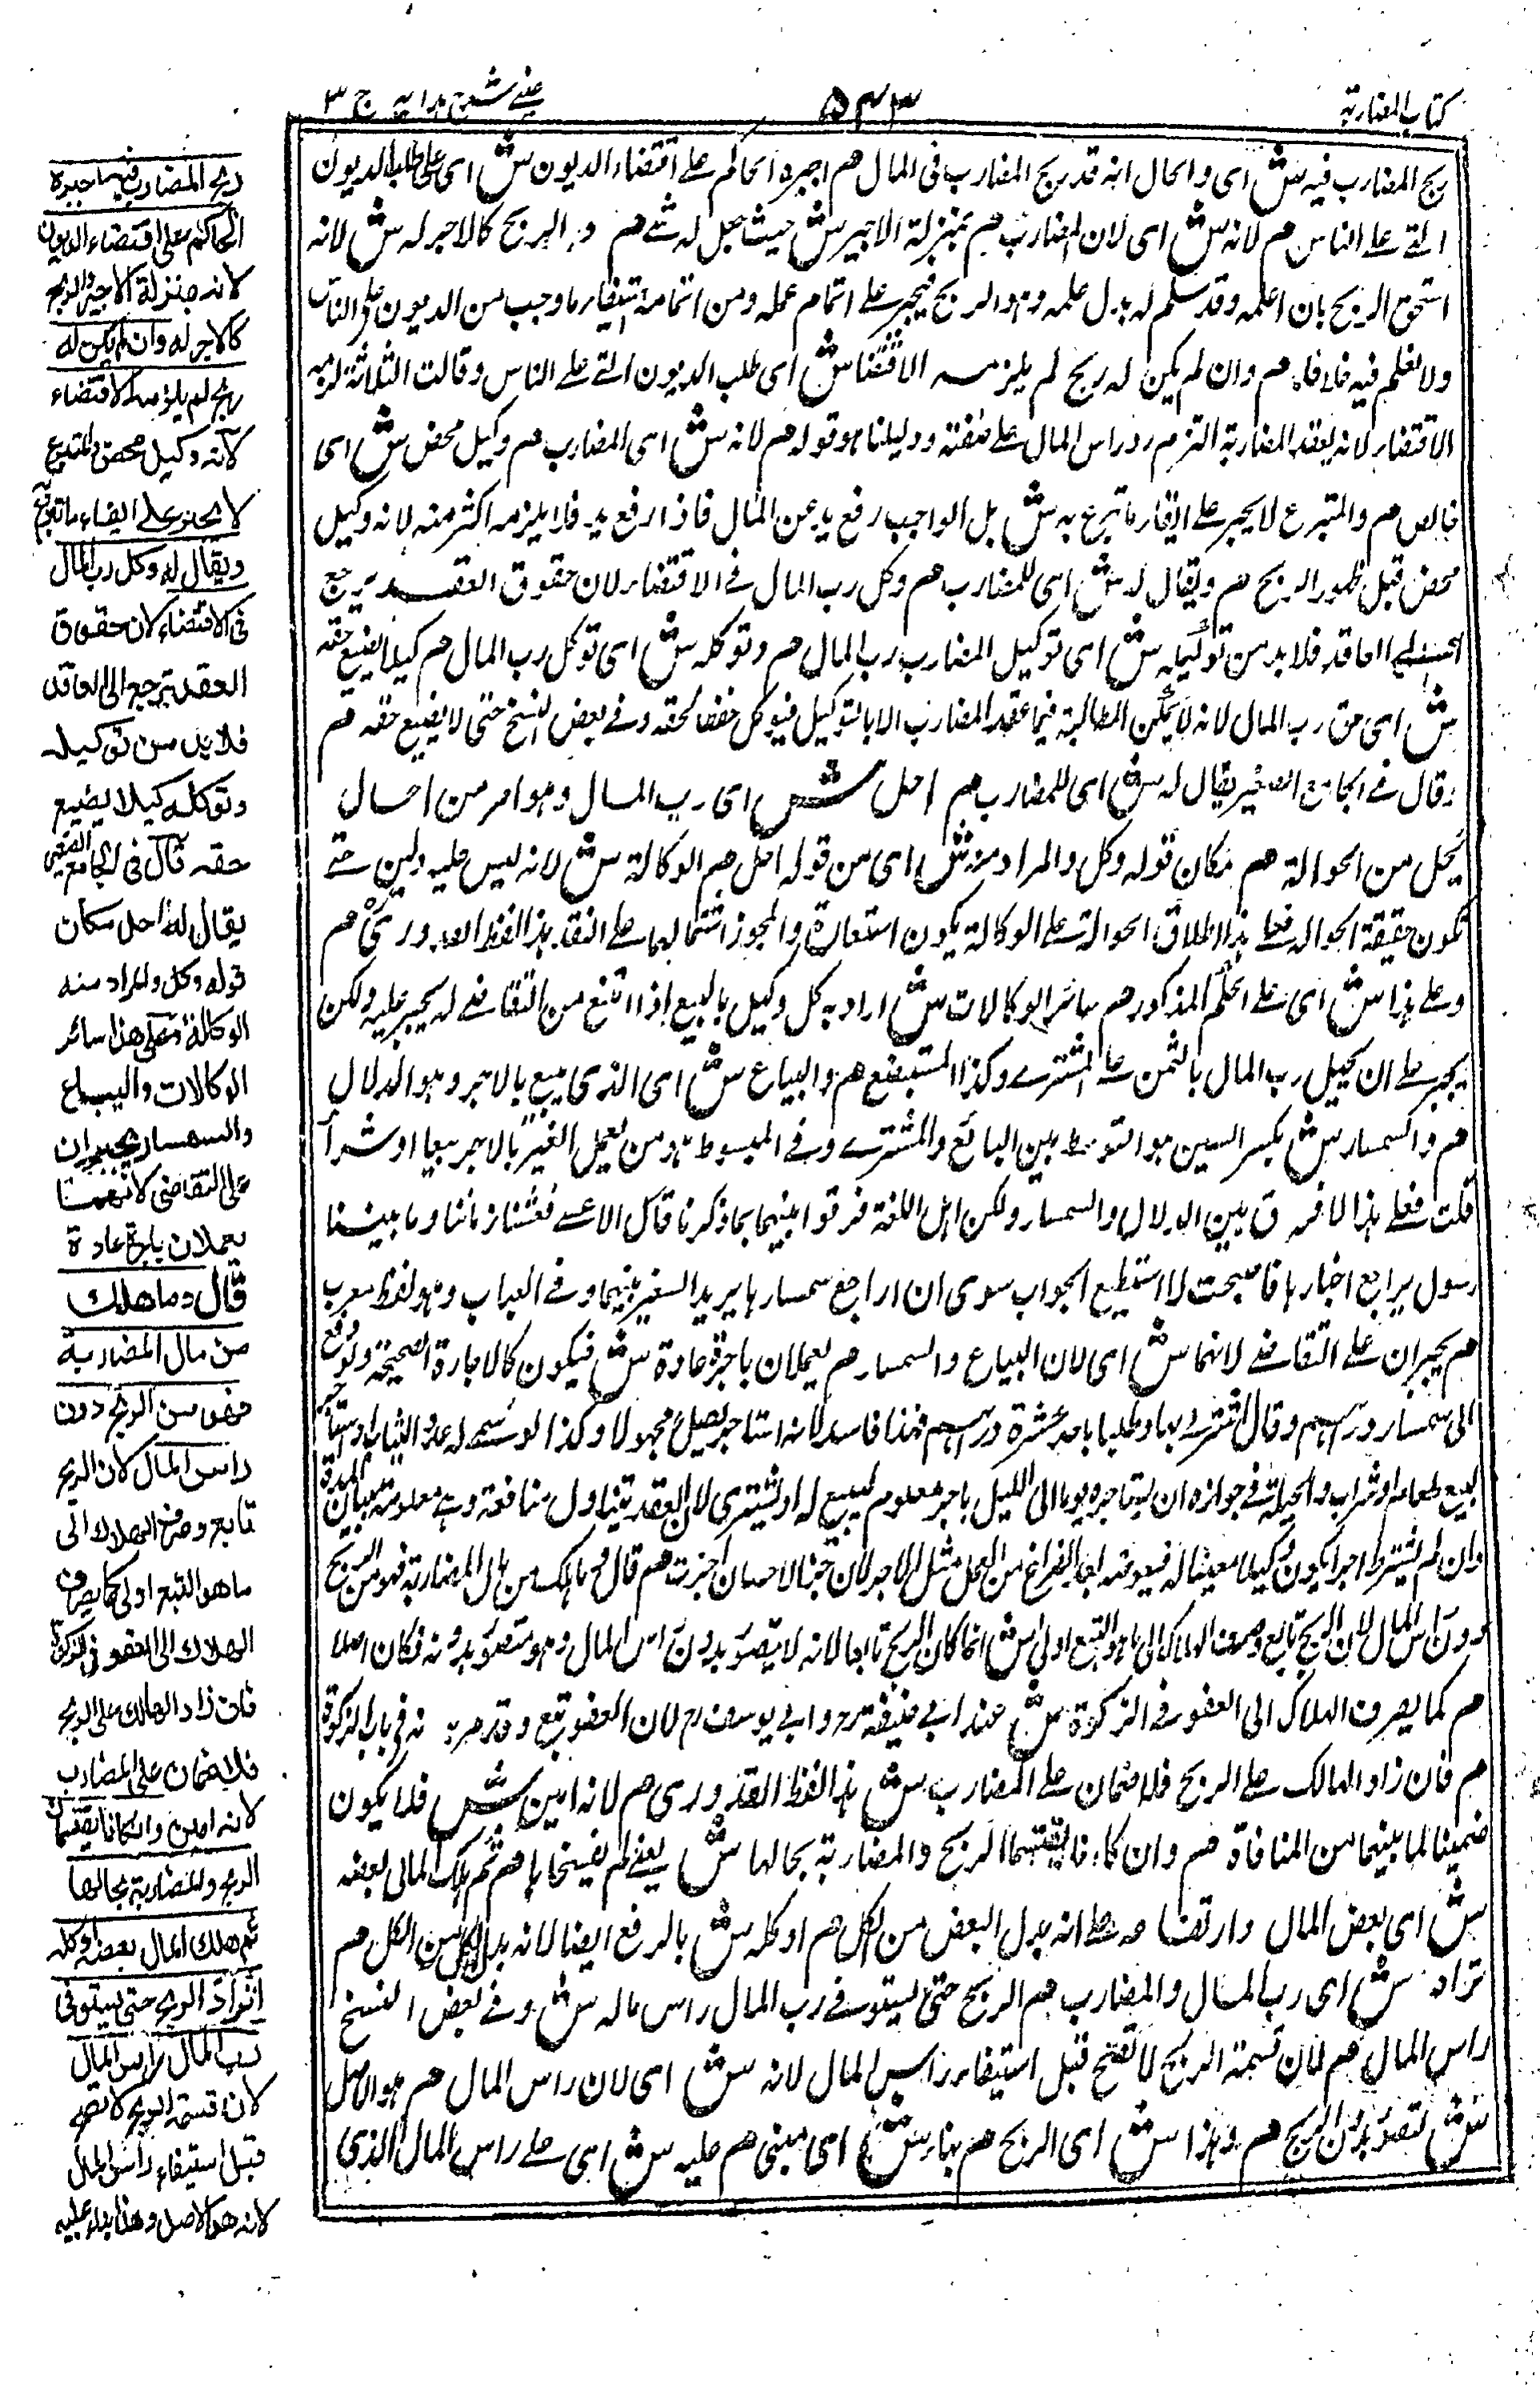 كتاب المضاربة
٥٤٣
عيني شرح هدايه ج ٣
ربح المضارب فيه ش اى والحال انه قد ربح المضارب فى المال هم اجبره الحاكم على اقتضاء الديون ش اى على طلب الديون
التي على الناس هم لانه ش اى لان المضارب هم بمنزلة الاجير ش حيث يجل له شے هم والربح كالاجر له ش لانه
استحق الربح بان اعلمه وقد سلم له بدل عمله وهو الربح فيجبر على اتمام عمله ومن اتمامه استيفاء ما وجب من الديون على الناس
هم وان لم يكن له ربح لم يلزمه الاقتضا ش اى طلب الديون التي على الناس وقالت الثلاثة لزمه
الاقتضاء لانه بعقد المضاربة التزم رد راس المال على صفته ودليلنا هو قوله هم لانه ش اى المضارب هم وكيل محض ش اى
خالص هم والمتبرع لا يجبر على ايفاء ما تبرع به ش بل الواجب رفع يده عن المال فاذا رفع يده فلا يلزمه اكثر منه لانه وكيل
محض قبل ظهور الربح هم ويقال له ش اى للمضارب هم وكل رب المال فے الاقتضاء لان حقوق العقد ترجع
الے العاقد فلا بد من توكيله ش اى توكيل المضارب رب المال هم وتوكله ش اى توكل رب المال هم كيلا يضيع حقه
ش اى حق رب المال لانه لا يمكن المطالبة فيما عقد المضارب الا بالتوكيل فيوكل حفظا لحقه وفے بعض النسخ حتى لا يضيع حقه هم
وقال فے الجامع الصغير يقال له ش اى للمضارب هم احل ش اى رب المال وهو امر من احال
يحيل من الحوالة هم مكان قوله وكل والمراد منه ش اى من قوله احل هم الوكالة ش لانه ليس عليه دين حتے
تكون حقيقة الحواله فعلى هذا اطلاق الحوالة على الوكالة يكون استعارة والمجوز اشتمالهما على النقل هذا لفظ القدوري هم
وعلى هذا ش اى على الحكم المذكور هم سائر الوكالات ش اراد به كل وكيل بالبيع اذا امتنع من التقاضے لا يجبر عليه ولكن
يجبر على ان يحيل رب المال بالثمن على المشترے وكذا المستبضع هم والبياع ش اى الذى يبيع بالاجر وهو الدلال
هم والسمسار ش بكسر السين هو المتوسط بين البائع والمشترے وفے المبسوط هو من يعمل الغير بالاجر بيعا او شراء
قلت فعلى هذا لا فرق بين الدلال والسمسار ولكن اهل اللغة فرقوا بينهما بما ذكرنا قال الاعشے فعشنا زماننا وما بيننا
رسول يراجع اخبارها فاصبحت لا استطيع الجواب سوى ان اراجع سمسارها يريد السفير بينهما وفے العباب وهو لفظ معرب
هم يجبران على التقاضے لانهما ش اى لان البياع والسمسار هم يعملان باجرة عادة ش فيكون كالاجارة الصحيحة ولو دفع
الى سمسار دراهم وقال اشتر بها باجر عشرة دراهم فهذا فاسد لانه استاجر بعمل مجهولا وكذا لو سمى له عدد الثياب او استاجر
لبيع طعام او شراب والحيلة فے جوازه ان يستاجره يوما الى الليل باجر معلوم ليبيع له او يشترى لان العقد يتناول منافعه وهے معلومة ببيان المدة
وان لم يشترط اجرا يكون وكيلا معينا له فيعوضه بعد الفراغ من العمل مثل الاجر لان جزاء الاحسان احسان هم قال وما هلك من مال المضاربة فهو من الربح
دون راس المال لان الربح تابع وصرف الهلاك الى ما هو التبع اولى ش انما كان الربح تابعا لانه لا يتصور بدون راس المال وهو متصور بدونه فكان اصلا
هم كما يصرف الهلاك الى العفو فے الزكوة ش عند ابے حنيفة رح وابے يوسف رح لان العفو تبع وقد مر فى باب الزكوة
هم فان زاد الهالك على الربح فلا ضمان على المضارب ش هذا لفظ القدورى هم لانه امين ش فلا يكون
ضمينا لما بينهما من المنافاة هم وان كانا يقتسمان الربح والمضاربة بحالها ش يعنے لم يفسخاها هم ثم هلك المال بعضه
ش اى بعض المال وارتفاعه على انه بدل البعض من الكل هم او كله ش بالرفع ايضا لانه بدل الكل من الكل هم
ترادا ش اى رب المال والمضارب هم الربح حتى يستوفے رب المال راس ماله ش وفے بعض النسخ
راس المال هم لان قسمة الربح لا تصح قبل استيفاء راس المال لانه ش اى لان راس المال هم هو الاصل
ش لتصور بدون الربح هم وهذا ش اى الربح هم بناء ش اى مبنى هم عليه ش اى على راس المال الذى
ربح المضارب فيه اجبره
الحاكم على اقتضاء الديون
لانه بمنزلة الاجير والربح
كالاجر له وان لم يكن له
ربح لم يلزمه الاقتضاء
لانه وكيل محض والمتبرع
لا يجبر على ايفاء ما تبرع به
ويقال له وكل رب المال
فى الاقتضاء لان حقوق
العقد ترجع الى العاقد
فلا بد من توكيله
وتوكله كيلا يضيع
حقه قال فى الجامع الصغير
يقال له احل مكان
قوله وكل والمراد منه
الوكالة وعلى هذا سائر
الوكالات والبياع
والسمسار يجبران
على التقاضى لانهما
يعملان باجرة عادة
قال وما هلك
من مال المضاربة
فهو من الربح دون
راس المال لان الربح
تابع وصرف الهلاك الى
ما هو التبع اولى كما يصرف
الهلاك الى العفو فى الزكوة
فان زاد الهالك على الربح
فلا ضمان على المضارب
لانه امين وان كانا يقتسمان
الربح والمضاربة بحالها
ثم هلك المال بعضه او كله
ترادا الربح حتى يستوفى
رب المال راس المال
لان قسمة الربح لا تصح
قبل استيفاء راس المال
لانه هو الاصل وهذا بناء عليه